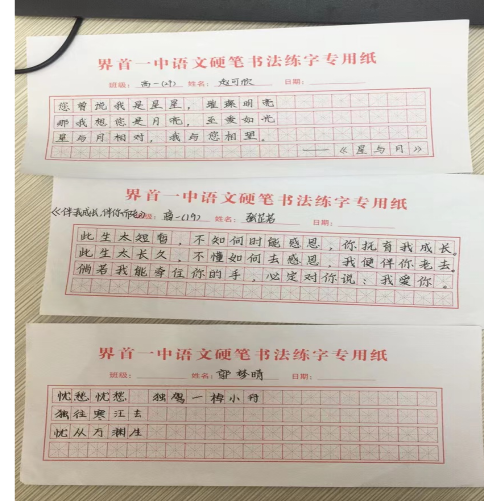 界首一中语文硬笔书法练字专用纸
班级：高一(2) 姓名：赵可欣 日期：
您曾说我是星星，璀璨明亮
那我想您是月亮，至爱如光
星与月相对，我与您相望。
——《星与月》
界首一中语文硬笔书法练字专用纸
《伴我成长,伴你 班级：高一(19) 姓名： 日期：
此生太短暂，不知何时能感恩，你抚育我成长。
此生太长久，不懂如何去感恩，我便伴你老去。
倘若我能牵住你的手，必定对你说：我爱你。
界首一中语文硬笔书法练字专用纸
班级： 姓名：郭梦晴 日期：
忧愁忧愁，独驾一梅小舟
独往寒江去
忧从万渊生